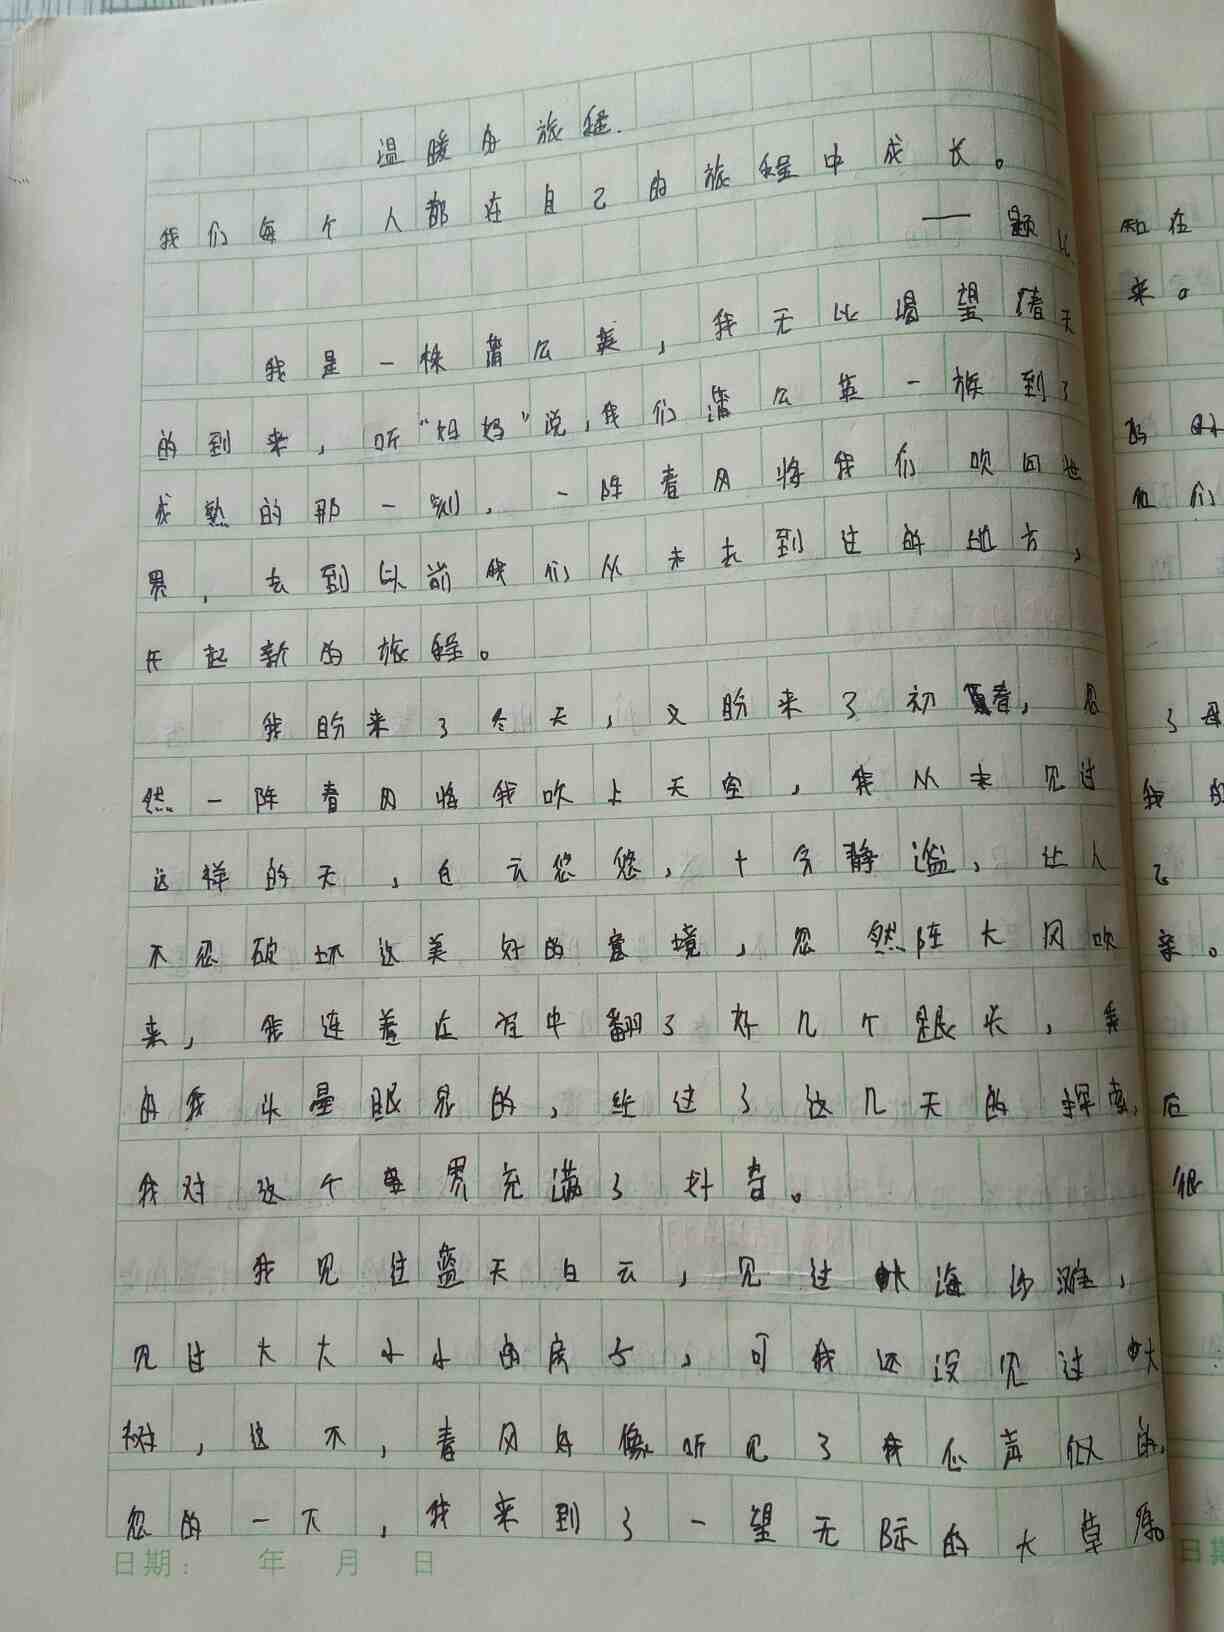 温暖的旅程.
我们每个人都在自己的旅程中成长。
——题记
我是一株蒲公英，我无比渴望春天
的到来，听“妈妈”说，我们蒲公英一族到了
成熟的那一刻，一阵春风将我们吹回世
界，去到以前我们从未去到过的地方，
开起新的旅程。
我盼来了冬天，又盼来了初春，忽
然一阵春风将我吹上天空，我从未见过
这样的天，白云悠悠，十分静谧，让人
不忍破坏这美好的意境，忽然阵大风吹
来，我连着在空中翻了好几个跟头，
的我头晕眼晃的，经过了这几天的探索，
我对这个世界充满了好奇。
我见过蓝天白云，见过大海沙滩，
见过大大小小的房子，可我还没见过大
树，这不，春风好像听见了我心声似的，
忽的一下，我来到了一望无际的大草原。
日期： 年 月 日
知在
来。
他们
了母
我的
亲。
后
很
日期